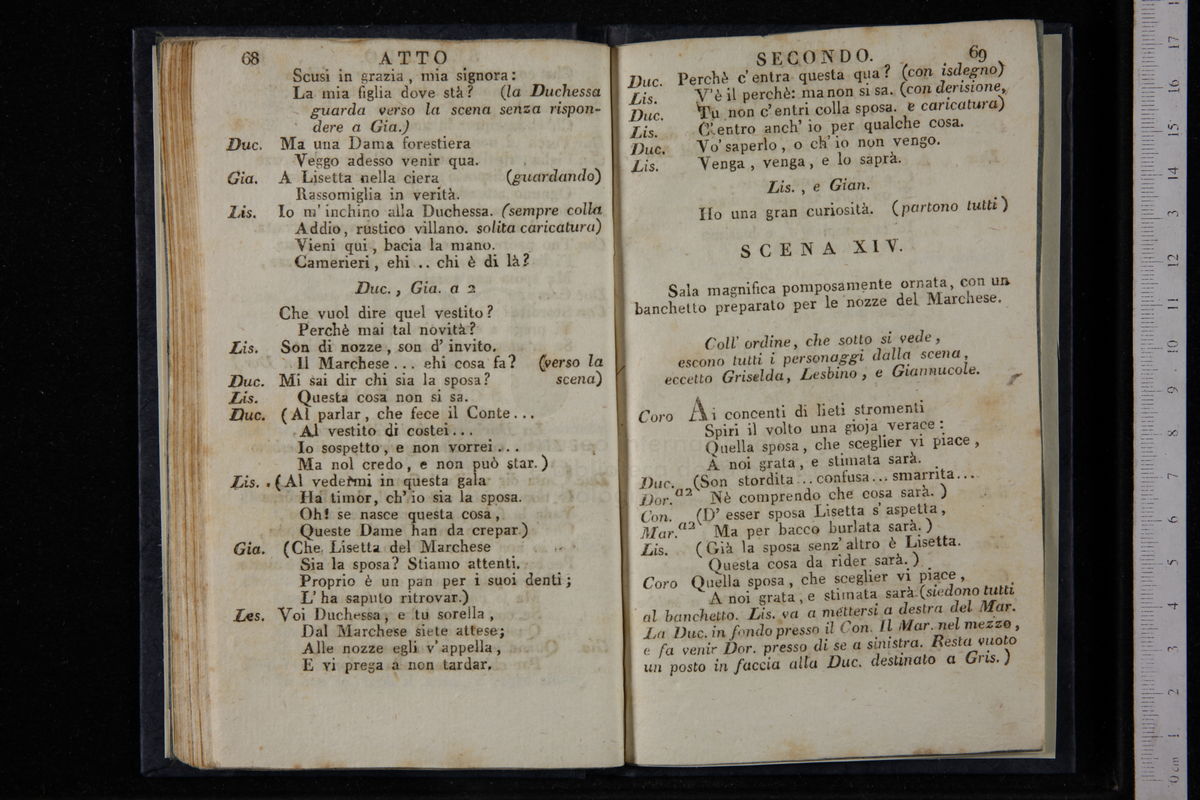 68 ATTO
Scusi in grazia, mia signora:
La mia figlia dove stà? (la Duchessa
guarda verso la scena senza rispon-
dere a Gia.)
Duc. Ma una Dama forestiera
Veggo adesso venir qua.
Gia. A Lisetta nella ciera (guardando)
Rassomiglia in verità.
Lis. Io m'inchino alla Duchessa. (sempre colla
Addio, rustico villano. solita caricatura)
Vieni qui, bacia la mano.
Camerieri, ehi .. chi è di là?
Duc., Gia. a 2
Che vuol dire quel vestito?
Perchè mai tal novità?
Lis. Son di nozze, son d'invito.
Il Marchese... ehi cosa fa? (verso la
Duc. Mi sai dir chi sia la sposa? scena)
Lis. Questa cosa non si sa.
Duc. (Al parlar, che fece il Conte...
Al vestito di costei...
Io sospetto, e non vorrei...
Ma nol credo, e non può star.)
Lis. (Al vedermi in questa gala
Ha timor, ch'io sia la sposa.
Oh! se nasce questa cosa,
Queste Dame han da crepar.)
Gia. (Che Lisetta del Marchese
Sia la sposa? Stiamo attenti.
Proprio è un pan per i suoi denti;
L'ha saputo ritrovar.)
Les. Voi Duchessa, e tu sorella,
Dal Marchese siete attese;
Alle nozze egli v'appella,
E vi prega a non tardar.
SECONDO. 69
Duc. Perchè c'entra questa qua? (con isdegno)
Lis. V'è il perchè: ma non si sa. (con derisione,
Duc. Tu non c'entri colla sposa. e caricatura)
Lis. C'entro anch'io per qualche cosa.
Duc. Vo' saperlo, o ch'io non vengo.
Lis. Venga, venga, e lo saprà.
Lis., e Gian.
Ho una gran curiosità. (partono tutti)
SCENA XIV.
Sala magnifica pomposamente ornata, con un
banchetto preparato per le nozze del Marchese.
Coll'ordine, che sotto si vede,
escono tutti i personaggi dalla scena,
eccetto Griselda, Lesbino, e Giannucole.
Coro Ai concenti di lieti stromenti
Spiri il volto una gioja verace:
Quella sposa, che sceglier vi piace,
A noi grata, e stimata sarà.
Duc. (Son stordita... confusa... smarrita...
Dor. a2 Nè comprendo che cosa sarà.)
Con. (D'esser sposa Lisetta s'aspetta,
Mar. a2 Ma per bacco burlata sarà.)
Lis. (Già la sposa senz'altro è Lisetta.
Questa cosa da rider sarà.)
Coro Quella sposa, che sceglier vi piace,
A noi grata, e stimata sarà. (siedono tutti
al banchetto. Lis. va a mettersi a destra del Mar.
La Duc. in fondo presso il Con. Il Mar. nel mezzo,
e fa venir Dor. presso di se a sinistra. Resta vuoto
un posto in faccia alla Duc. destinato a Gris.)
0 cm 1 2 3 4 5 6 7 8 9 10 11 12 13 14 15 16 17